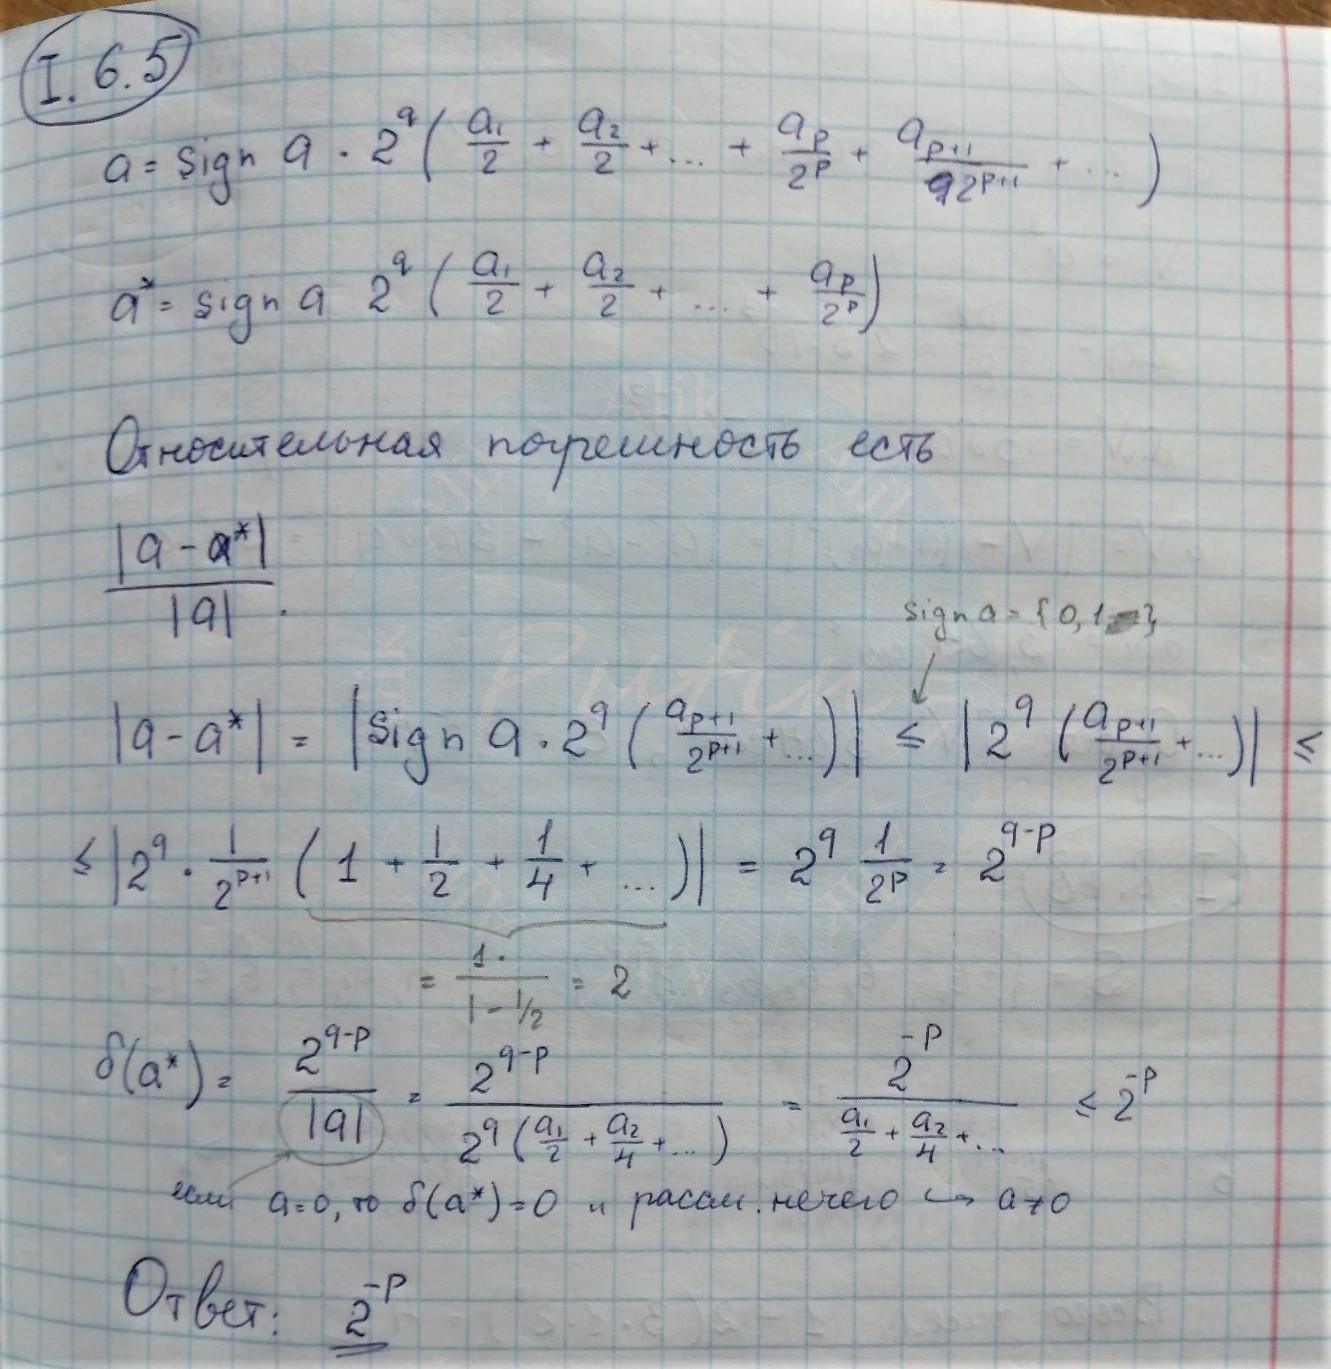 I.6.5
a = sign a · 2^q ( a₁/2 + a₂/2 + ... + a_p/2^p + a_{p+1}/2^{p+1} + ... )
a* = sign a 2^q ( a₁/2 + a₂/2 + ... + a_p/2^p )
Относительная погрешность есть
|a - a*| / |a| .
sign a = {0, 1}
|a - a*| = |sign a · 2^q ( a_{p+1}/2^{p+1} + ... )| ≤ |2^q ( a_{p+1}/2^{p+1} + ... )| ≤
≤ |2^q · 1/2^{p+1} ( 1 + 1/2 + 1/4 + ... )| = 2^q 1/2^p = 2^{q-p}
= 1·/(1 - 1/2) = 2
δ(a*) = 2^{q-p}/|a| = 2^{q-p} / ( 2^q ( a₁/2 + a₂/4 + ... ) ) = 2^{-p} / ( a₁/2 + a₂/4 + ... ) ≤ 2^{-p}
если a=0, то δ(a*)=0 и рассм. нечего ↪ a≠0
Ответ: 2^{-p}
Alik
Putin